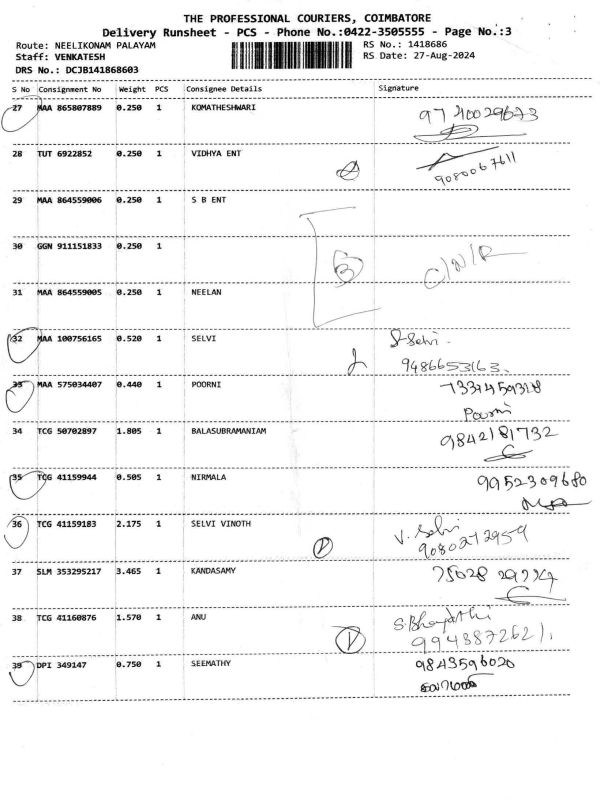 THE PROFESSIONAL COURIERS, COIMBATORE
Delivery Runsheet - PCS - Phone No.:0422-3505555 - Page No.:3
Route: NEELIKONAM PALAYAM
RS No.: 1418686
Staff: VENKATESH
RS Date: 27-Aug-2024
DRS No.: DCJB141868603
S No Consignment No Weight PCS Consignee Details Signature
27 MAA 865807889 0.250 1 KOMATHESHWARI
28 TUT 6922852 0.250 1 VIDHYA ENT
9080067611
29 MAA 864559006 0.250 1 S B ENT
30 GGN 911151833 0.250 1
3 C/N/R
31 MAA 864559005 0.250 1 NEELAN
32 MAA 100756165 0.520 1 SELVI S-Selvi
9486653163.
33 MAA 575034407 0.440 1 POORNI
Poorni
34 TCG 50702897 1.805 1 BALASUBRAMANIAM 9842181732
35 TCG 41159944 0.505 1 NIRMALA 9952309680
36 TCG 41159183 2.175 1 SELVI VINOTH V. Selvi
9080272959
37 SLM 353295217 3.465 1 KANDASAMY
38 TCG 41160876 1.570 1 ANU
9943872621
39 DPI 349147 0.750 1 SEEMATHY 9843596020